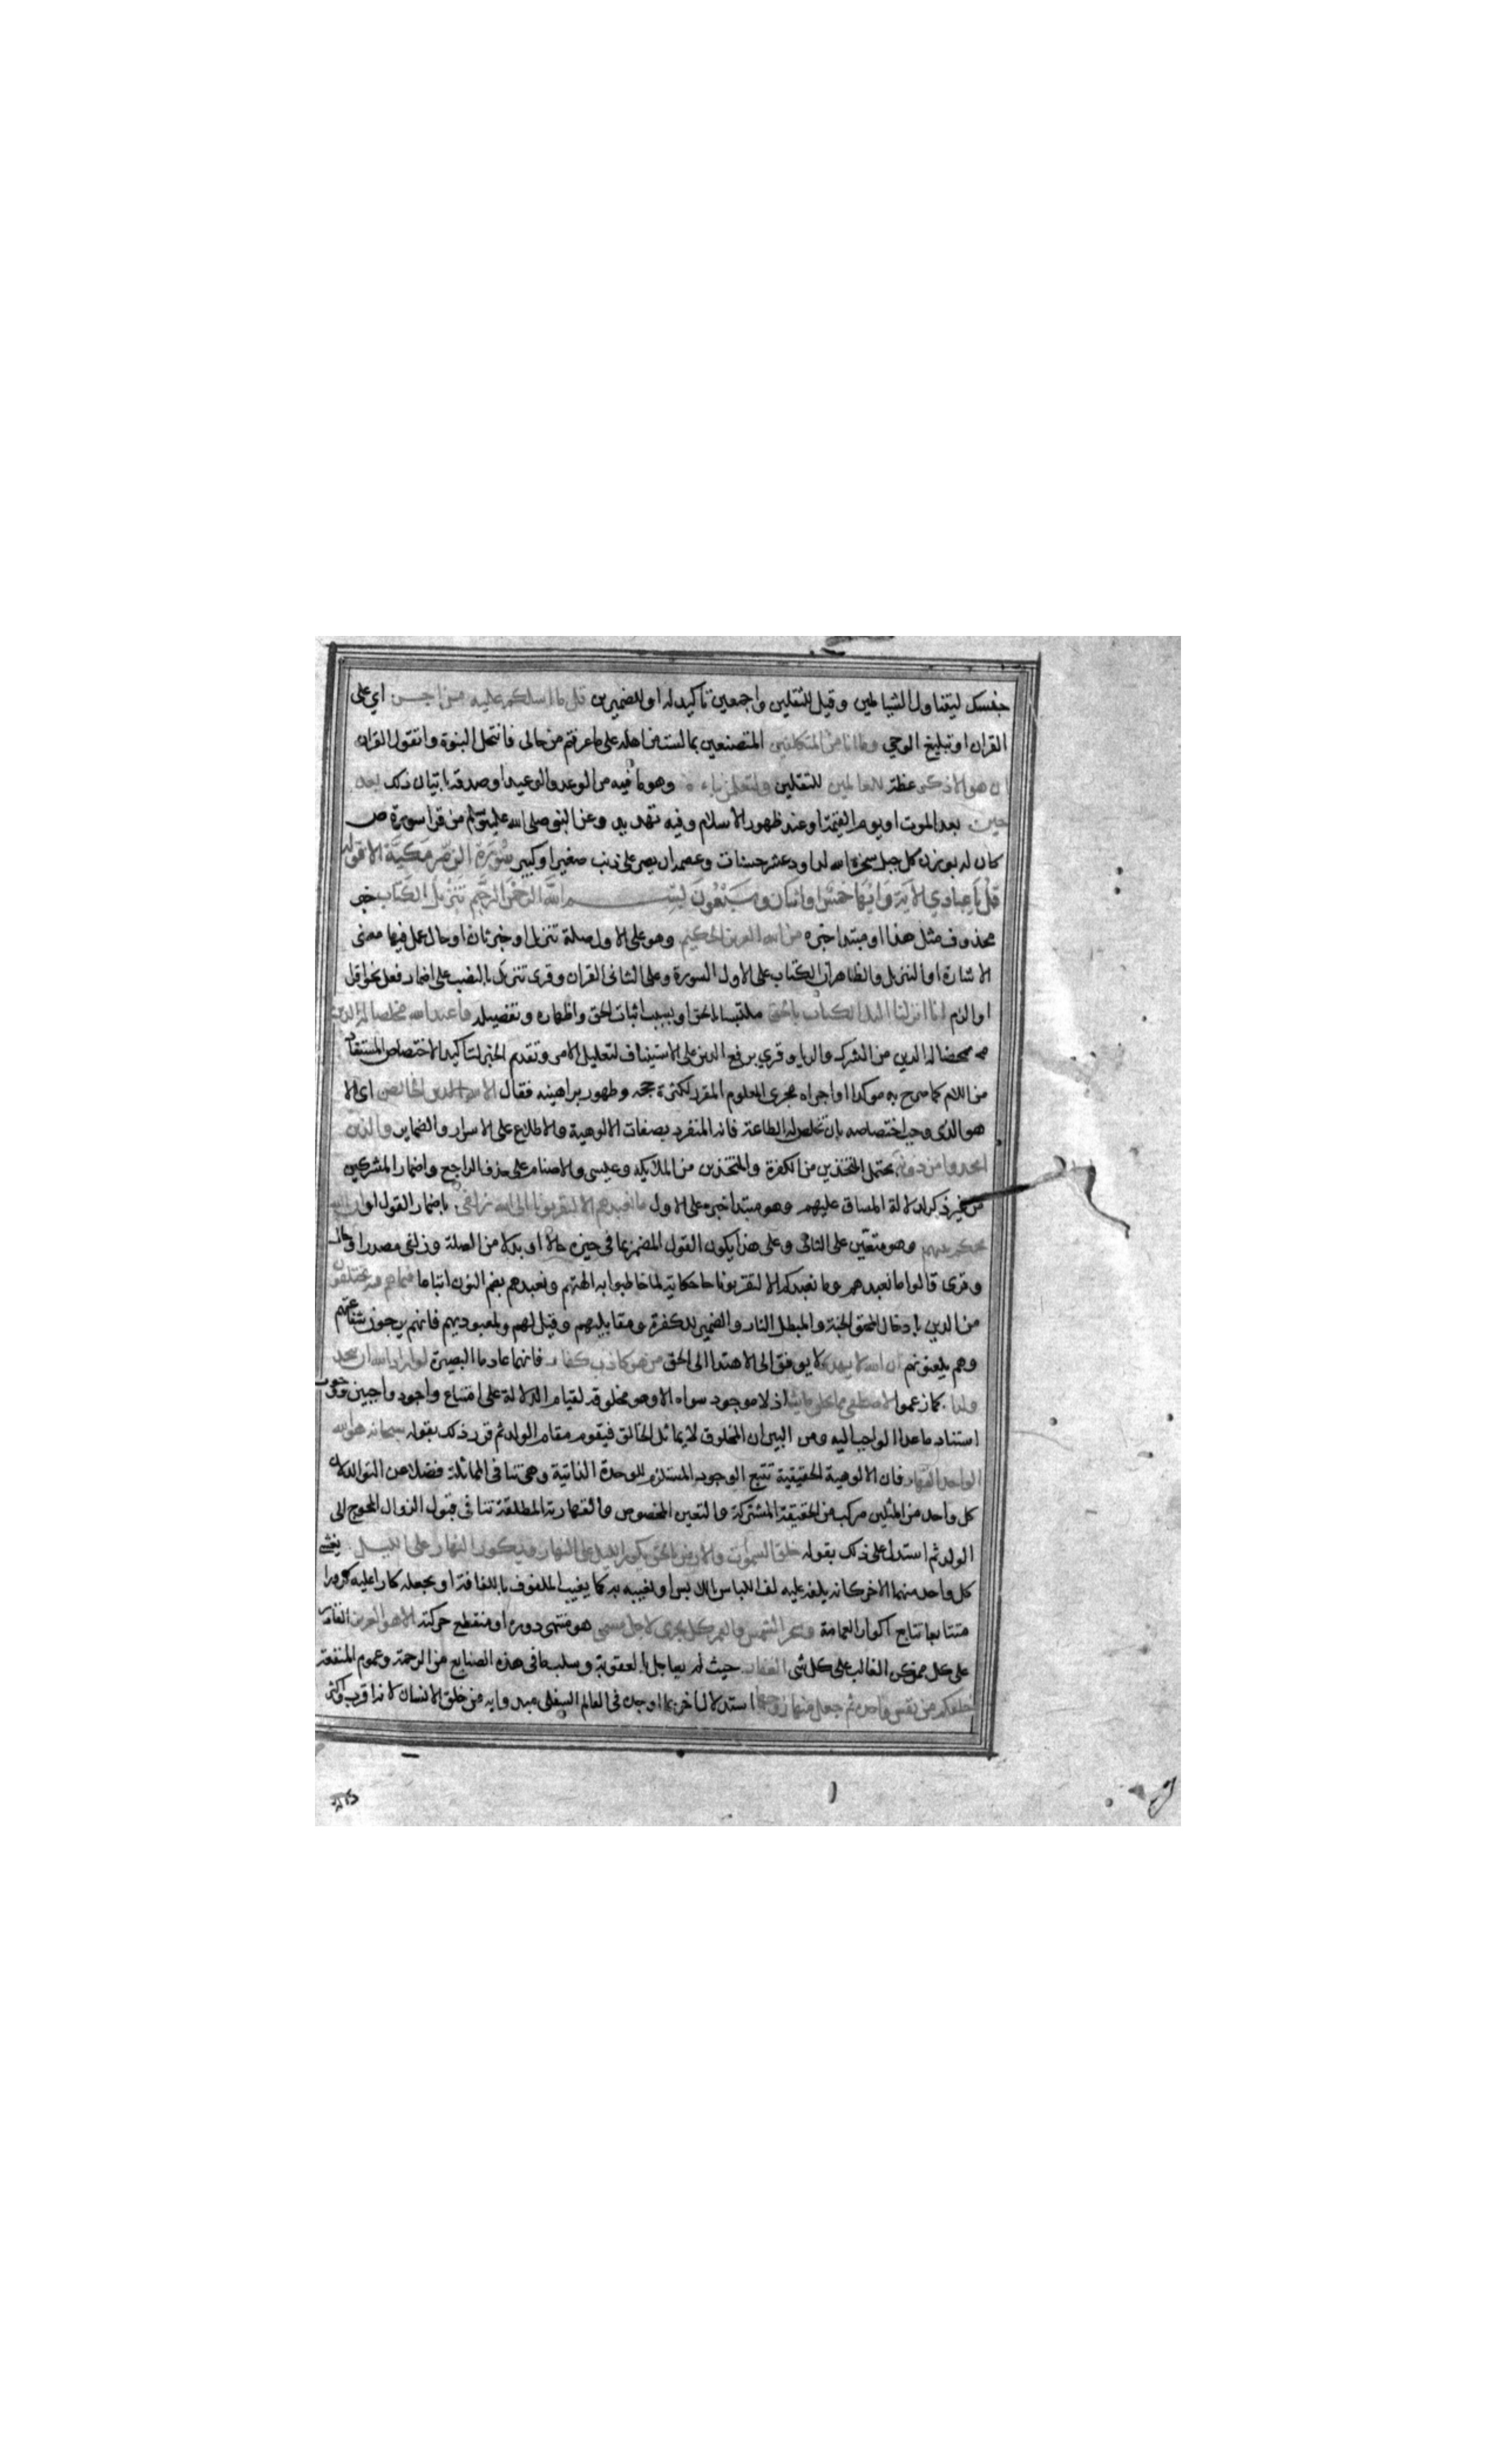 جنسك ليتناول الشياطين وقيل للثقلين واجمعين تاكيد له او للضميرين قل ما اسلكم عليه من اجر اي على
القران او تبليغ الوحي وما انا من المتكلفين المتصنعين بما لست من اهله على ما عرفتم من حالى فانتحل النبوة واتقول القران
ان هو الا ذكر عظة للعالمين للثقلين ولتعلمن نباه وهو ما فيه من الوعد والوعيد او صدقه باتيان ذلك بعد
حين بعد الموت او يوم القيمة او عند ظهور الاسلام وفيه تهديد وعن النبي صلى الله عليه وسلم من قرا سورة ص
كان له بوزن كل جبل سخره الله لداود عشر حسنات وعصمه ان يصر على ذنب صغير او كبير سورة الزمر مكية الا قوله
قل يا عبادي الاية وايها خمس او اثنان وسبعون بسم الله الرحمن الرحيم تنزيل الكتاب خبر
محذوف مثل هذا او مبتدا خبره من الله العزيز الحكيم وهو على الاول صلة تنزيل او خبر ثان او حال عمل فيها معنى
الاشارة او التنزيل والظاهر ان الكتاب على الاول السورة وعلى الثانى القران وقرى تنزيل بالنصب على اضمار فعل نحو اقرا
او الزم انا انزلنا اليك الكتاب بالحق ملتبسا بالحق او بسبب اثبات الحق واظهاره وتفصيله فاعبد الله مخلصا له الدين
ممحضا له الدين من الشرك والريا وقري برفع الدين على الاستيناف لتعليل الامر وتقديم الخبر لتاكيد الاختصاص المستفاد
من اللام كما صرح به موكدا او اجراه مجرى المعلوم المقرر لكثرة حججه وظهور براهينه فقال الا لله الدين الخالص اى الا
هو الذى وجب اختصاصه بان تخلص له الطاعة فانه المنفرد بصفات الالوهية والاطلاع على الاسرار والضماير والذين
اتخذوا من دونه يحتمل المتخذين من الكفرة والمتخذين من الملايكة وعيسى والاصنام على حذف الراجع واضمار المشركين
من غير ذكر لدلالة المساق عليهم وهو مبتدا خبره على الاول ما نعبدهم الا ليقربونا الى الله زلفى باضمار القول او ان الله
يحكم بينهم وهو متعين على الثانى وعلى هذا يكون القول المضمر بما فى حيزه حالا او بدلا من الصلة وزلفى مصدر او حال
وقرى قالوا ما نعبدهم وما نعبدكم الا لتقربونا حكاية لما خاطبوا به الهتهم ونعبدهم بضم النون اتباعا فيما هم فيه يختلفون
من الدين بادخال المحق الجنة والمبطل النار والضمير للكفرة ومقابليهم وقيل لهم ولمعبوديهم فانهم يرجون شفاعتهم
وهم يلعنونهم ان الله لا يهدى لا يوفق الى الاهتدا الى الحق من هو كاذب كفار فانهما عادما البصيرة لو اراد الله ان يتخذ
ولدا كما زعموا لاصطفى مما يخلق ما يشا اذ لا موجود سواه الا وهو مخلوقه لقيام الدلالة على امتناع وجود واجبين ووجوب
استناد ما عدا الواجب اليه ومن البين ان المخلوق لا يماثل الخالق فيقوم مقام الولد ثم قرر ذلك بقوله سبحانه هو الله
الواحد القهار فان الالوهية الحقيقية تتبع الوجوب المستلزم للوحدة الذاتية وهى تنافى المماثلة فضلا عن التوالد لان
كل واحد من المثلين مركب من الحقيقة المشتركة والتعين المخصوص والقهارية المطلقة تنافى قبول الزوال المحوج الى
الولد ثم استدل على ذلك بقوله خلق السموات والارض بالحق يكور الليل على النهار ويكور النهار على الليل يغشى
كل واحد منهما الاخر كانه يلفه عليه لف اللباس باللابس او يغيبه به كما يغيب الملفوف باللفافة او يجعله كارا عليه كرورا
متتابعا تتابع اكوار العمامة وسخر الشمس والقمر كل يجرى لاجل مسمى هو منتهى دوره او منقطع حركته الا هو العزيز القادر
على كل ممكن الغالب على كل شى الغفار حيث لم يعاجل بالعقوبة وسلب ما فى هذه الصنايع من الرحمة وعموم المنفعة
خلقكم من نفس واحدة ثم جعل منها زوجها استدلال اخر بما اوجده فى العالم السفلى مبدوا به من خلق الانسان لانه اقرب واكثر